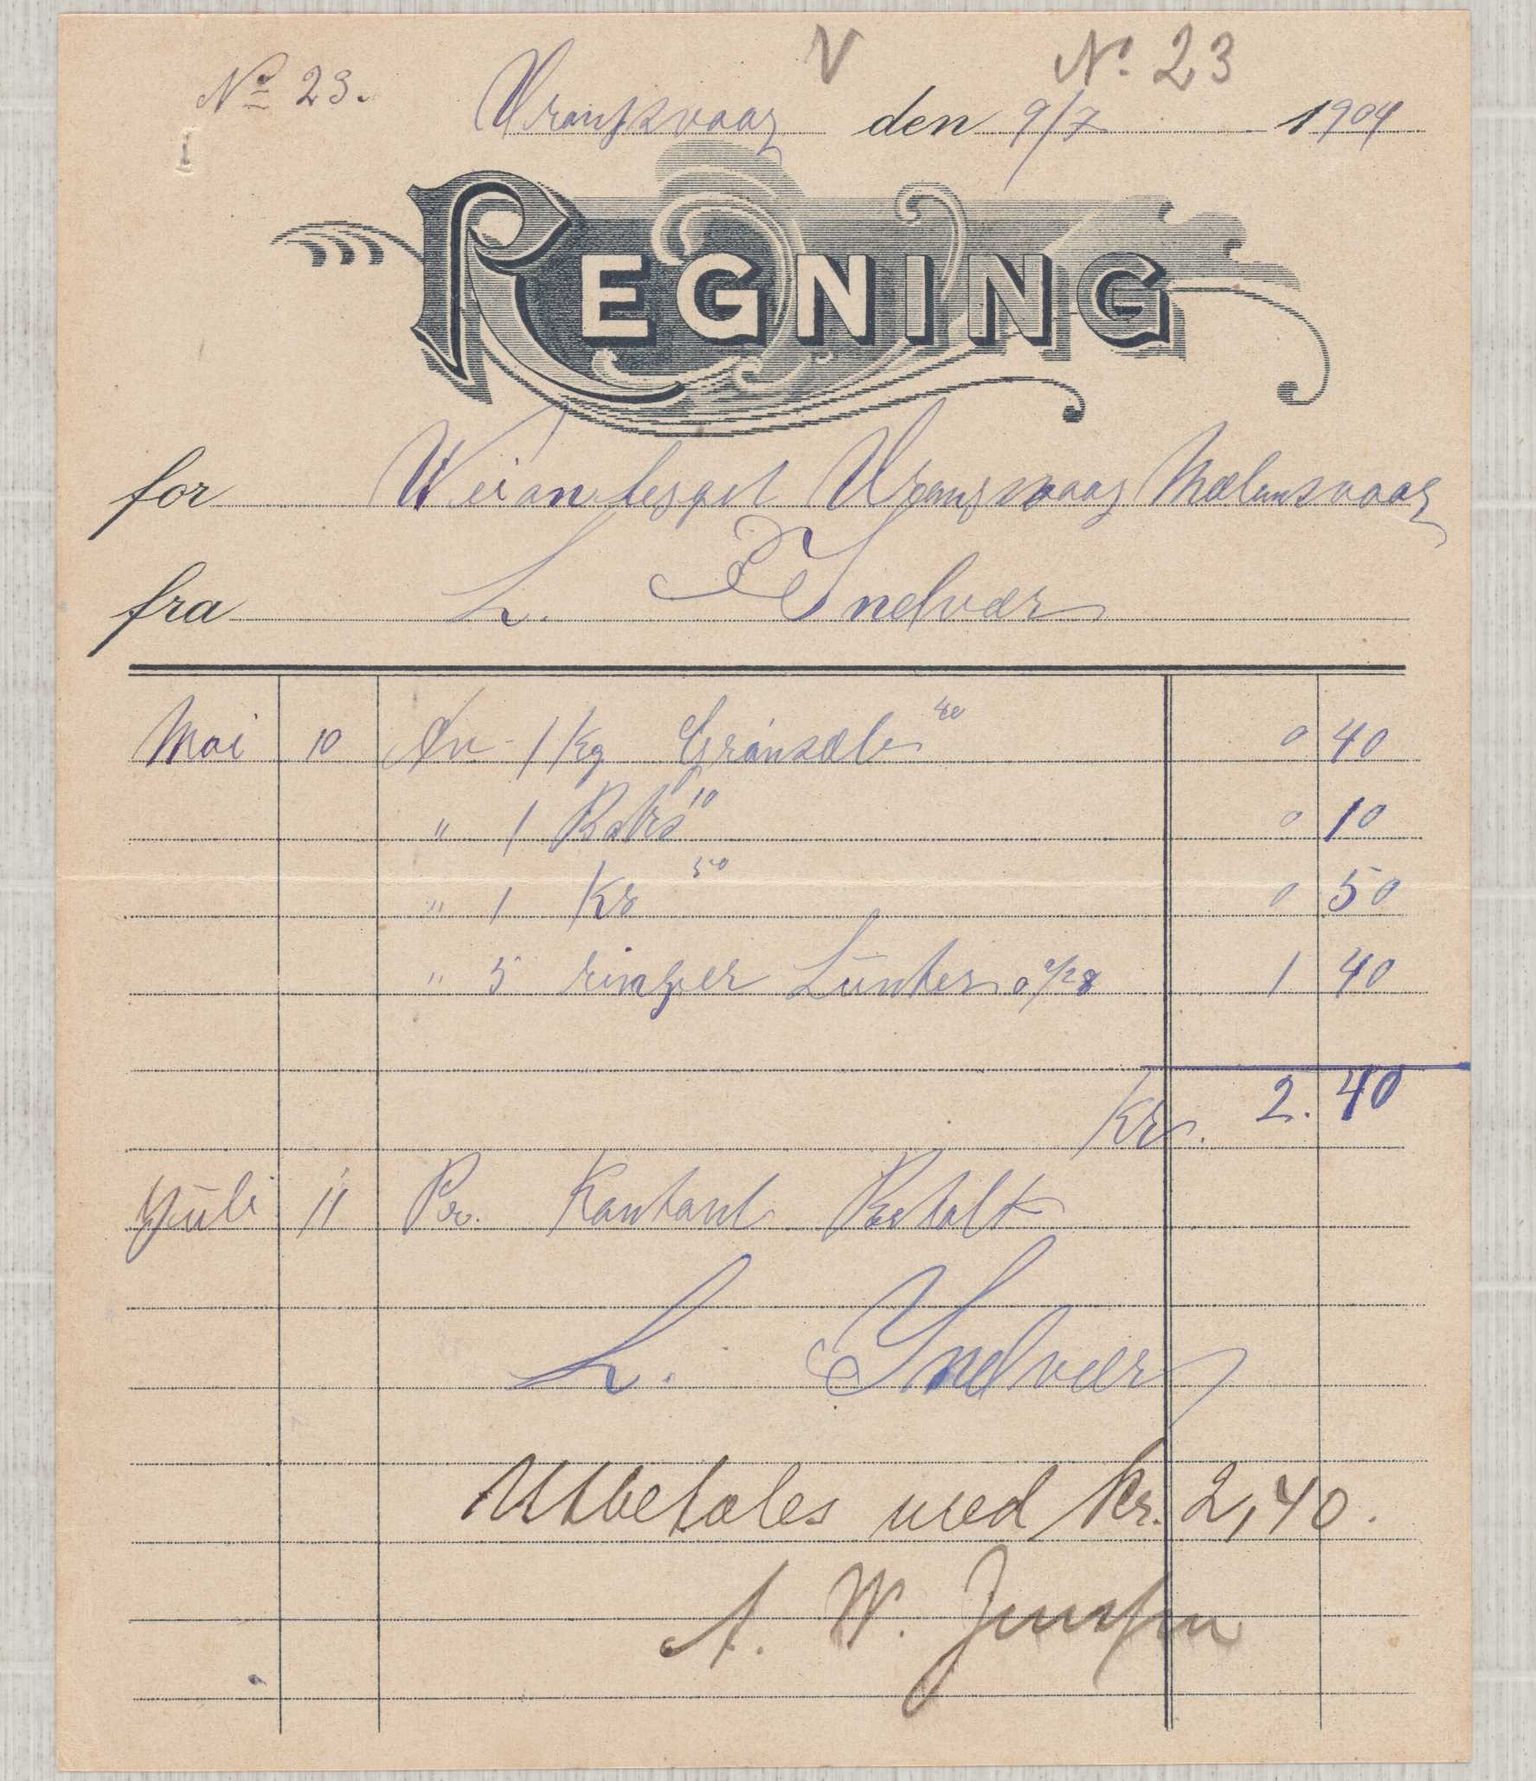 No 23.
V
No. 23
Vrangsvaag den 9/7 1904
REGNING
for Veianlegget Vrangsvaag Malmsvaag
fra L. Indvær
Mai 10 An 1 Kg Grønsæbe 40 0 40
" 1 10 0 10
" 1 Kr 50 0 50
" 5 ringer Lunter a /28 1 40
Kr. 2.40
Juli 11 Pr. Kontant Betalt
L. Indvær
Utbetales med Kr. 2,40.
A. W. Jenssen